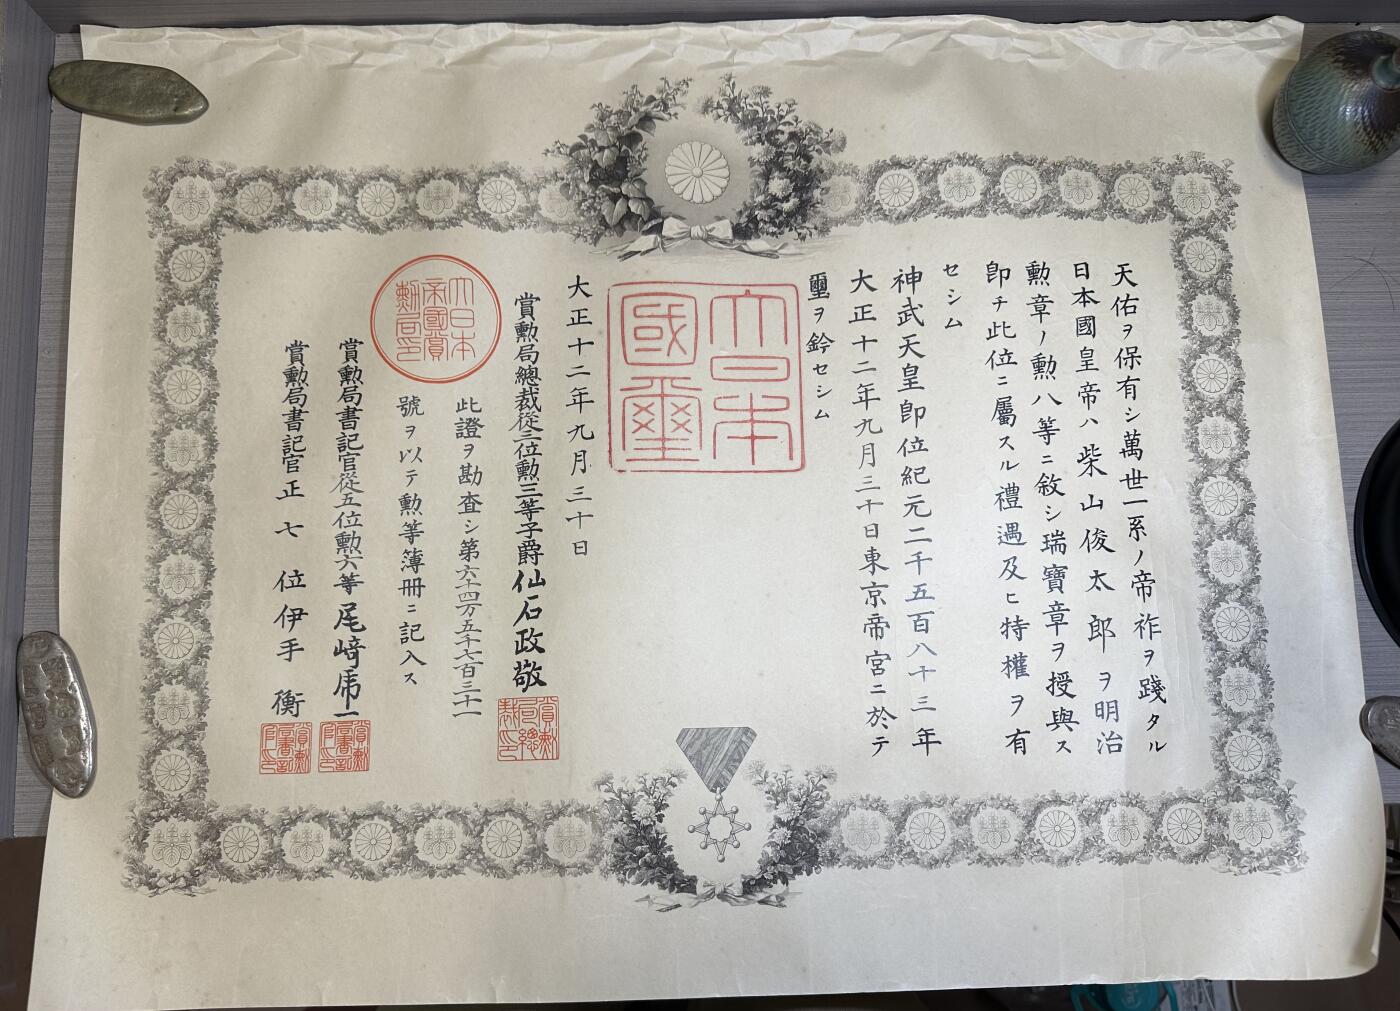 天佑ヲ保有シ萬世一系ノ帝祚ヲ踐タル
日本國皇帝ハ柴山俊太郎ヲ明治
勲章ノ勲八等ニ敘シ瑞寶章ヲ授與ス
卽チ此位ニ屬スル禮遇及ヒ特權ヲ有
セシム
神武天皇卽位紀元二千五百八十三年
大正十二年九月三十日東京帝宮ニ於テ
璽ヲ鈐セシム
大日本
國璽
大正十二年九月三十日
賞勲局總裁從三位勲三等子爵仙石政敬
賞勲局總裁印
此證ヲ勘査シ第六十四万五千七百三十一
號ヲ以テ勲等簿册ニ記入ス
大日本
帝國賞
勲局印
賞勲局書記官從五位勲六等尾﨑席一
賞勲局書記官印
賞勲局書記官正七位伊手衡
賞勲局書記官印